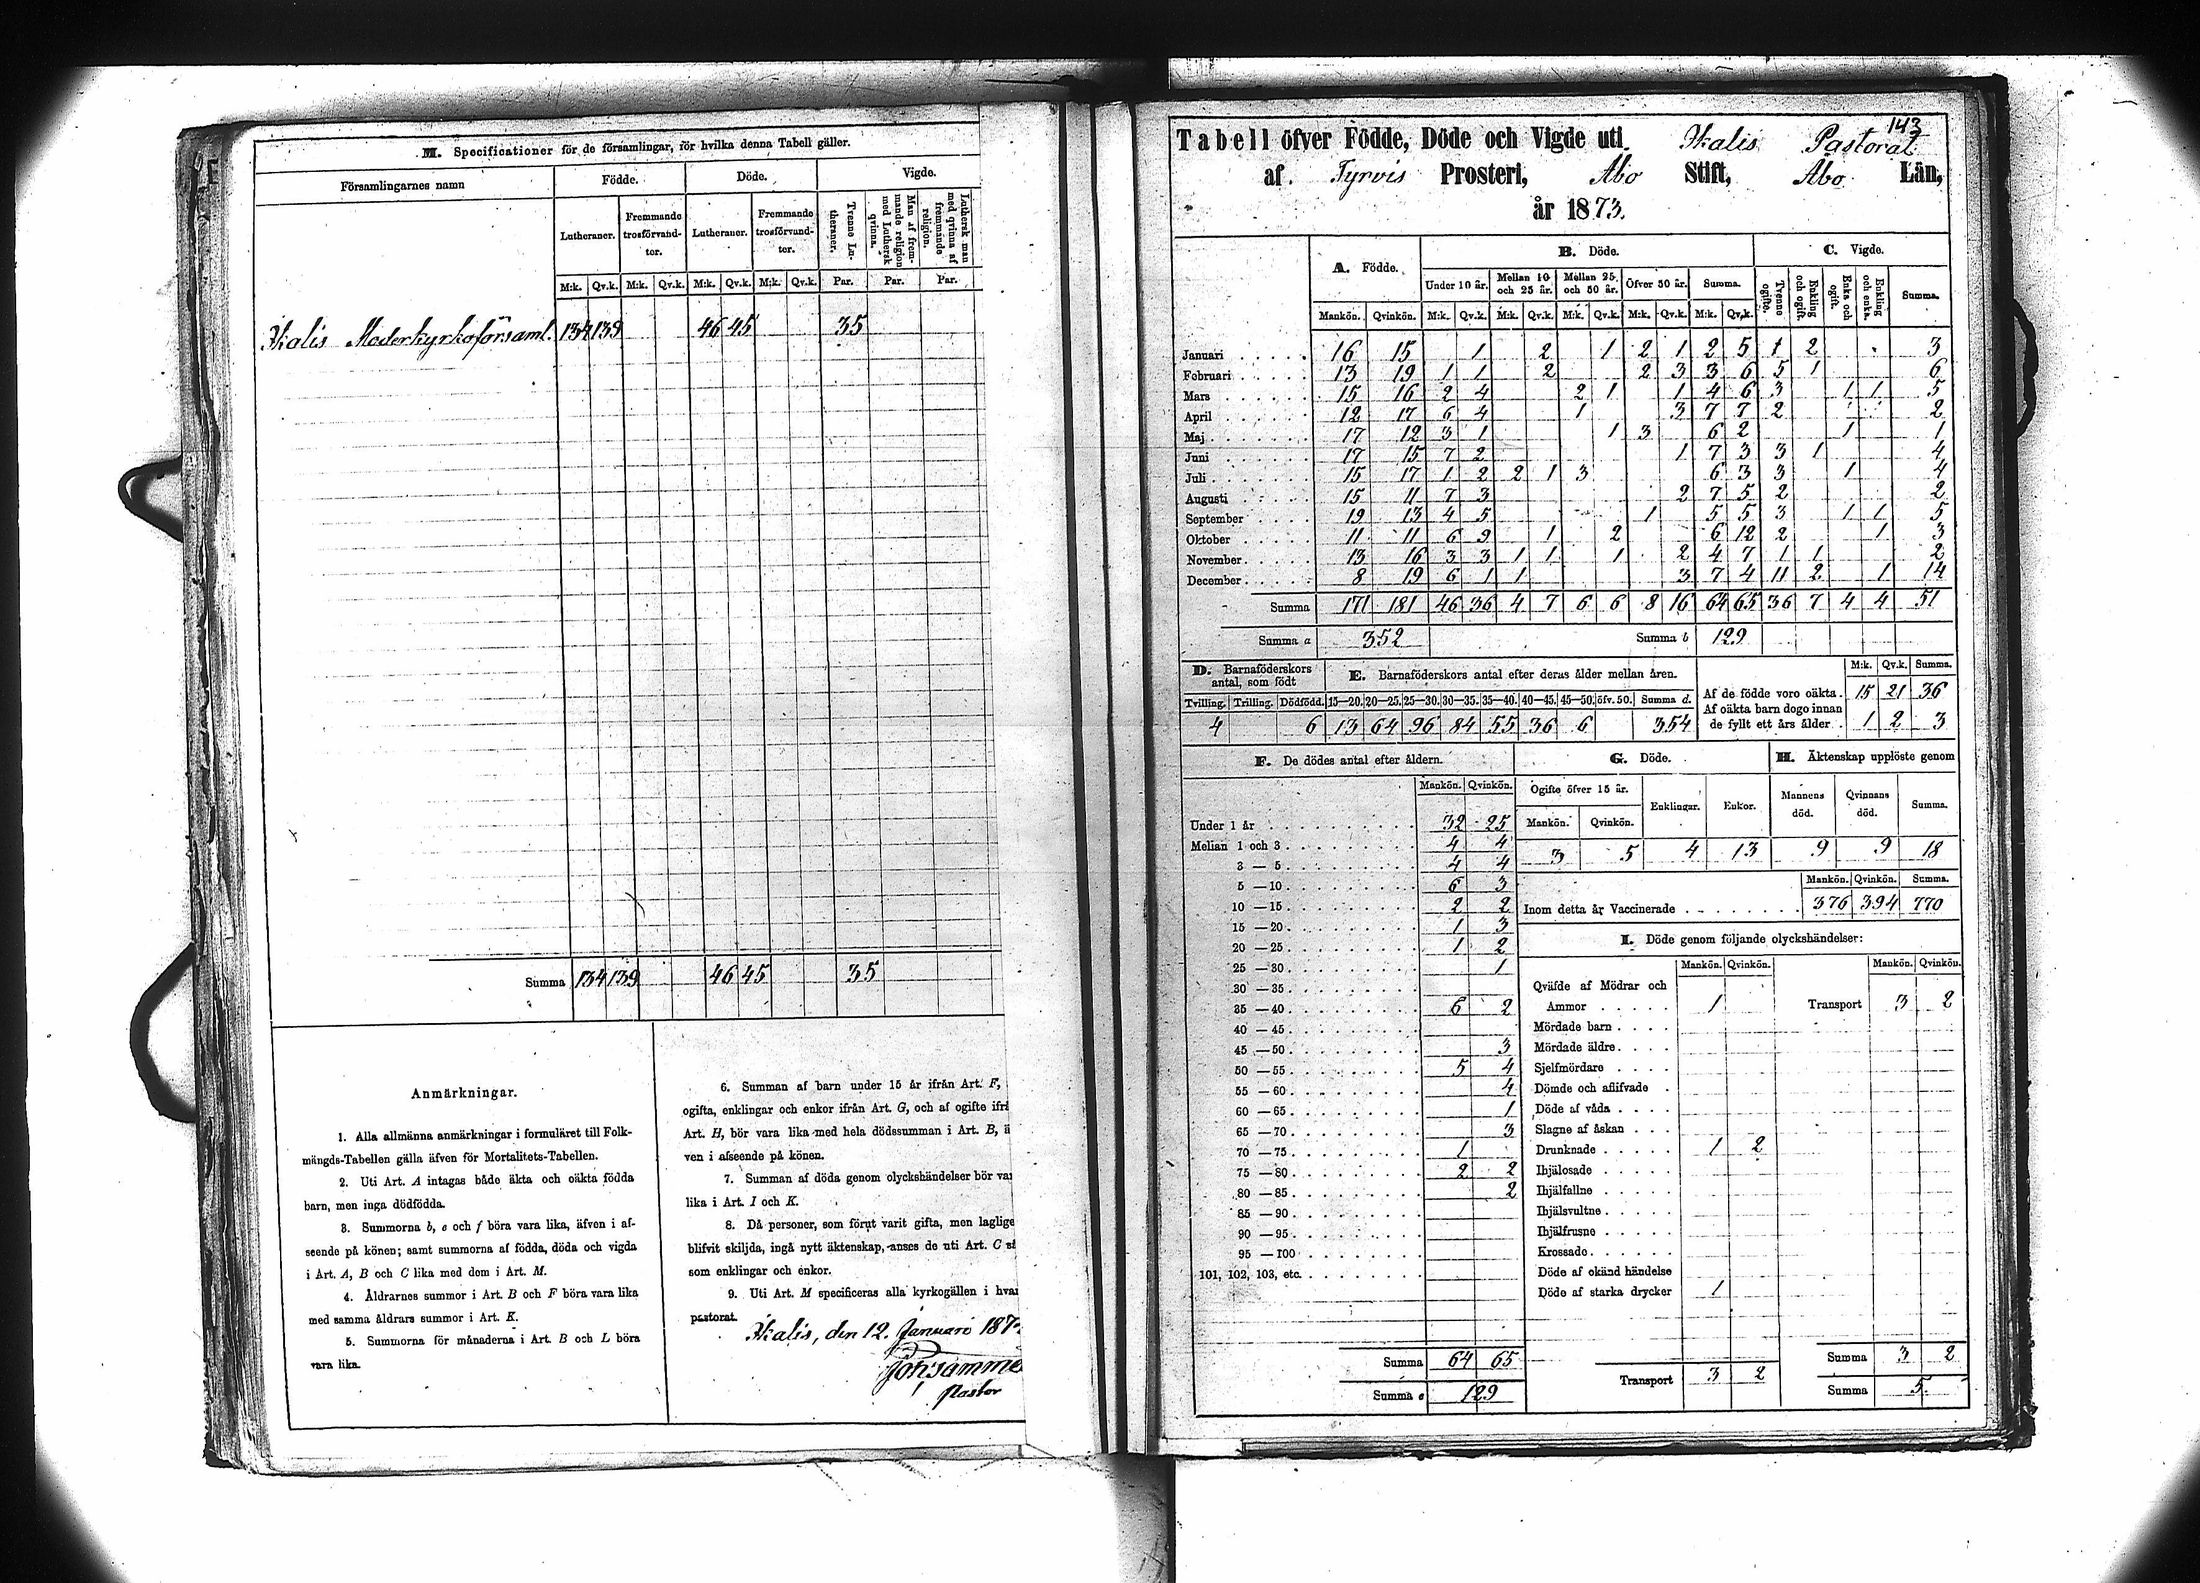 M. Specificationer för de församlingar, för hvilka denna Tabell gäller.
Församlingarnes namn
Födde.
Döde.
Vigde.
Lutheraner.
Fremmande trosförvandter.
Lutheraner.
Fremmande trosförvandter.
Tvenne Lutheraner.
Man af fremmande religion med Luthersk qvinna.
Luthersk man med qvinna af fremmande religion.
M:k. Qv.k. M:k. Qv.k. M:k. Qv.k. M:k. Qv.k. Par. Par. Par.
Ikalis Moderkyrkoförsaml. 134 139 46 45 35
Summa 134 139 46 45 35
Anmärkningar.
1. Alla allmänna anmärkningar i formuläret till Folk-
mängds-Tabellen gälla äfven för Mortalitets-Tabellen.
2. Uti Art. A intagas både äkta och oäkta födda
barn, men inga dödfödda.
3. Summorna b, e och f böra vara lika, äfven i af-
seende på könen; samt summorna af födda, döda och vigda
i Art. A, B och C lika med dem i Art. M.
4. Åldrarnes summor i Art. B och F böra vara lika
med samma åldrars summor i Art. K.
5. Summorna för månaderna i Art. B och L böra
vara lika.
6. Summan af barn under 15 år ifrån Art. F,
ogifta, enklingar och enkor ifrån Art. G, och af ogifte ifrå
Art. H, bör vara lika med hela dödssumman i Art. B, ä
ven i afseende på könen.
7. Summan af döda genom olyckshändelser bör var
lika i Art. I och K.
8. Då personer, som förut varit gifta, men laglige
blifvit skiljda, ingå nytt äktenskap, anses de uti Art. C så
som enklingar och enkor.
9. Uti Art. M specificeras alla kyrkogällen i hvar
pastorat.
Ikalis, den 12. Januari 187
Pastor
143
Tabell öfver Födde, Döde och Vigde uti Ikalis Pastorat
af Tyrvis Prosteri, Åbo Stift, Åbo Län,
år 1873.
A. Födde.
B. Döde.
C. Vigde.
Under 10 år. Mellan 10 och 25 år. Mellan 25 och 50 år. Öfver 50 år. Summa.
Tvenne ogifte. Enkling och ogift. Enka och ogift. Enkling och enka. Summa.
Mankön. Qvinkön. M:k. Qv.k. M:k. Qv.k. M:k. Qv.k. M:k. Qv.k. M:k. Qv.k.
Januari 16 15 1 2 1 2 1 2 5 1 2 3
Februari 13 19 1 1 2 2 3 3 6 5 1 6
Mars 15 16 2 4 2 1 1 4 6 3 1 1 5
April 12 17 6 4 1 3 7 7 2 2
Maj 17 12 3 1 1 3 6 2 1 1
Juni 17 15 7 2 1 7 3 3 1 4
Juli 15 17 1 2 2 1 3 6 3 3 1 4
Augusti 15 11 7 3 2 7 5 2 2
September 19 13 4 5 1 5 5 3 1 1 5
Oktober 11 11 6 9 1 2 6 12 2 1 3
November 13 16 3 3 1 1 1 2 4 7 1 1 2
December 8 19 6 1 1 3 7 4 11 2 1 14
Summa 171 181 46 36 4 7 6 6 8 16 64 65 36 7 4 4 51
Summa a 352 Summa b 129
D. Barnaföderskors antal, som födt
E. Barnaföderskors antal efter deras ålder mellan åren.
Tvilling. Trilling. Dödfödd. 15—20. 20—25. 25—30. 30—35. 35—40. 40—45. 45—50. öfv. 50. Summa d.
4 6 13 64 96 84 55 36 6 354
M:k. Qv.k. Summa.
Af de födde voro oäkta 15 21 36
Af oäkta barn dogo innan
de fyllt ett års ålder 1 2 3
F. De dödes antal efter åldern.
Mankön. Qvinkön.
Under 1 år 32 25
Mellan 1 och 3 4 4
3 — 5 4 4
5 — 10 6 3
10 — 15 2 2
15 — 20 1 3
20 — 25 1 2
25 — 30 1
30 — 35
35 — 40 6 2
40 — 45
45 — 50 3
50 — 55 5 4
55 — 60 4
60 — 65 1
65 — 70 3
70 — 75 1
75 — 80 2 2
80 — 85 2
85 — 90
90 — 95
95 — 100
101, 102, 103, etc.
Summa 64 65
Summa e 129
G. Döde.
Ogifte öfver 15 år. Enklingar. Enkor.
Mankön. Qvinkön.
3 5 4 13
H. Äktenskap upplöste genom
Mannens död. Qvinnans död. Summa.
9 9 18
Mankön. Qvinkön. Summa.
Inom detta år Vaccinerade 376 394 770
I. Döde genom följande olyckshändelser:
Mankön. Qvinkön. Mankön. Qvinkön.
Qväfde af Mödrar och
Ammor 1
Mördade barn
Mördade äldre
Sjelfmördare
Dömde och aflifvade
Döde af våda
Slagne af åskan
Drunknade 1 2
Ihjälosade
Ihjälfallne
Ihjälsvultne
Ihjälfrusne
Krossade
Döde af okänd händelse
Döde af starka drycker 1
Transport 3 2
Transport 3 2
Summa 3 2
Summa 5.